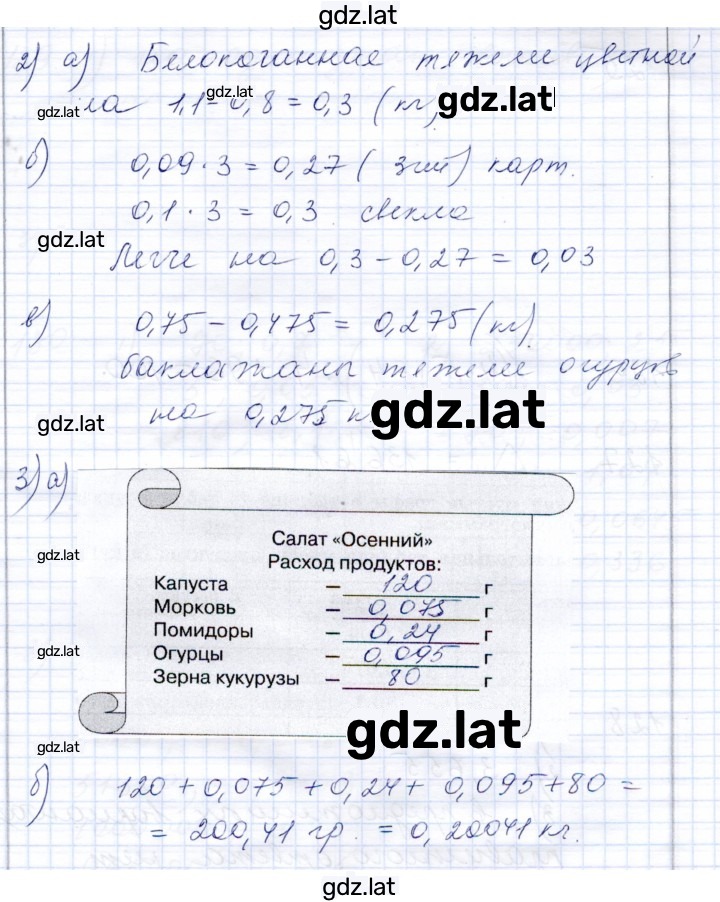 gdz.lat
2) а) Белокочанная тяжелее цветной
gdz.lat на 1,1 - 0,8 = 0,3 (кг) gdz.lat gdz.lat
б) 0,09 · 3 = 0,27 ( ) карт.
0,1 · 3 = 0,3 свекла
gdz.lat
Легче на 0,3 - 0,27 = 0,03
в) 0,75 - 0,475 = 0,275 (кг)
баклажаны тяжелее огурцов
gdz.lat на 0,275 к gdz.lat
3) а)
Салат «Осенний»
gdz.lat
Расход продуктов:
Капуста – 120 г
Морковь – 0,075 г
Помидоры – 0,24 г
gdz.lat Огурцы – 0,095 г
Зерна кукурузы – 80 г
gdz.lat
gdz.lat
б) 120 + 0,075 + 0,24 + 0,095 + 80 =
= 200,41 гр. = 0,20041 кг.
gdz.lat